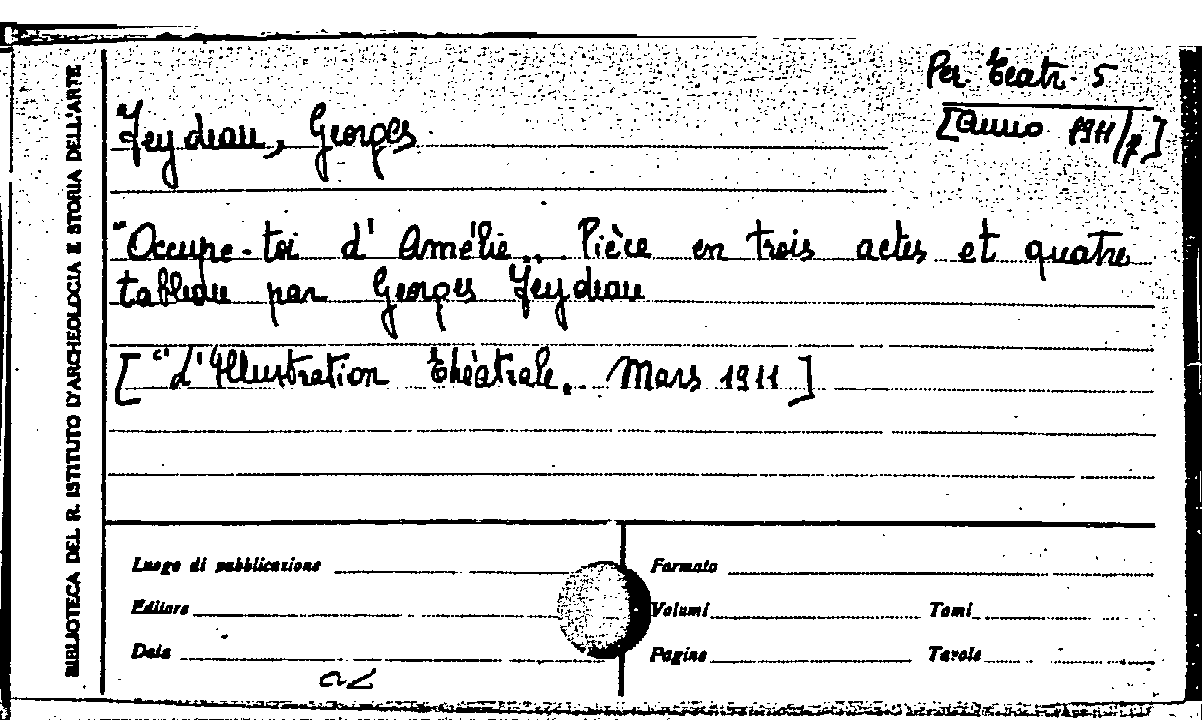 BIBLIOTECA DEL R. ISTITUTO D'ARCHEOLOGIA E STORIA DELL'ARTE
Per. Teatr. 5
[Anno 1911/7]
Feydeau, Georges
"Occupe-toi d'Amélie.. Pièce en trois actes et quatre
tableau par Georges Feydeau
["L'Illustration théâtrale.. Mars 1911]
Luogo di pubblicazione
Formato
Editore
Volumi
Tomi
Data
Pagine
Tavole